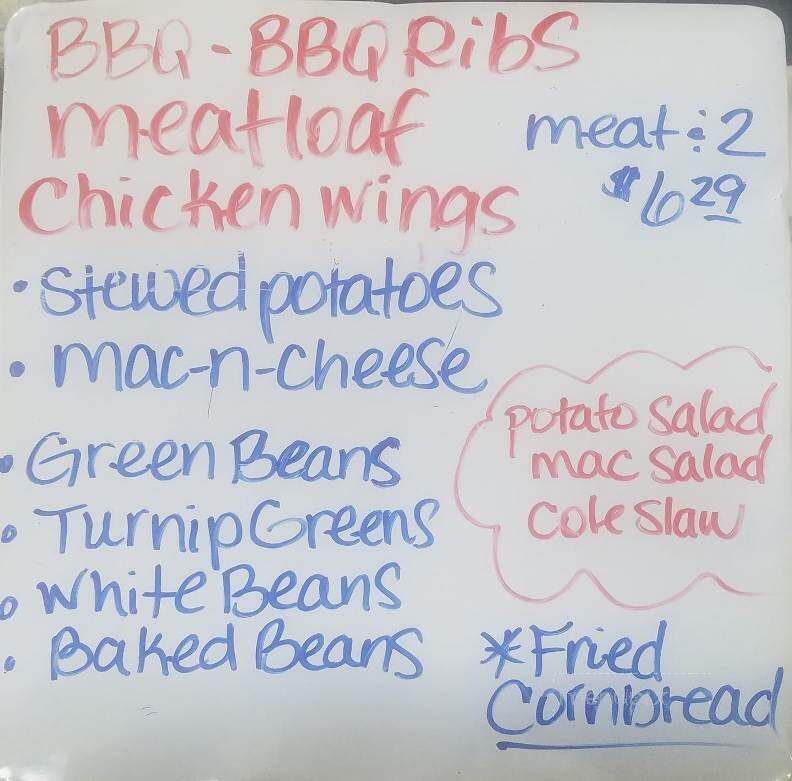 BBQ - BBQ Ribs
meatloaf
Chicken wings
meat & 2
$6 29
• Stewed potatoes
• mac-n-cheese
• Green Beans
• Turnip Greens
• White Beans
• Baked Beans
potato Salad
mac Salad
Cole Slaw
*Fried
Cornbread